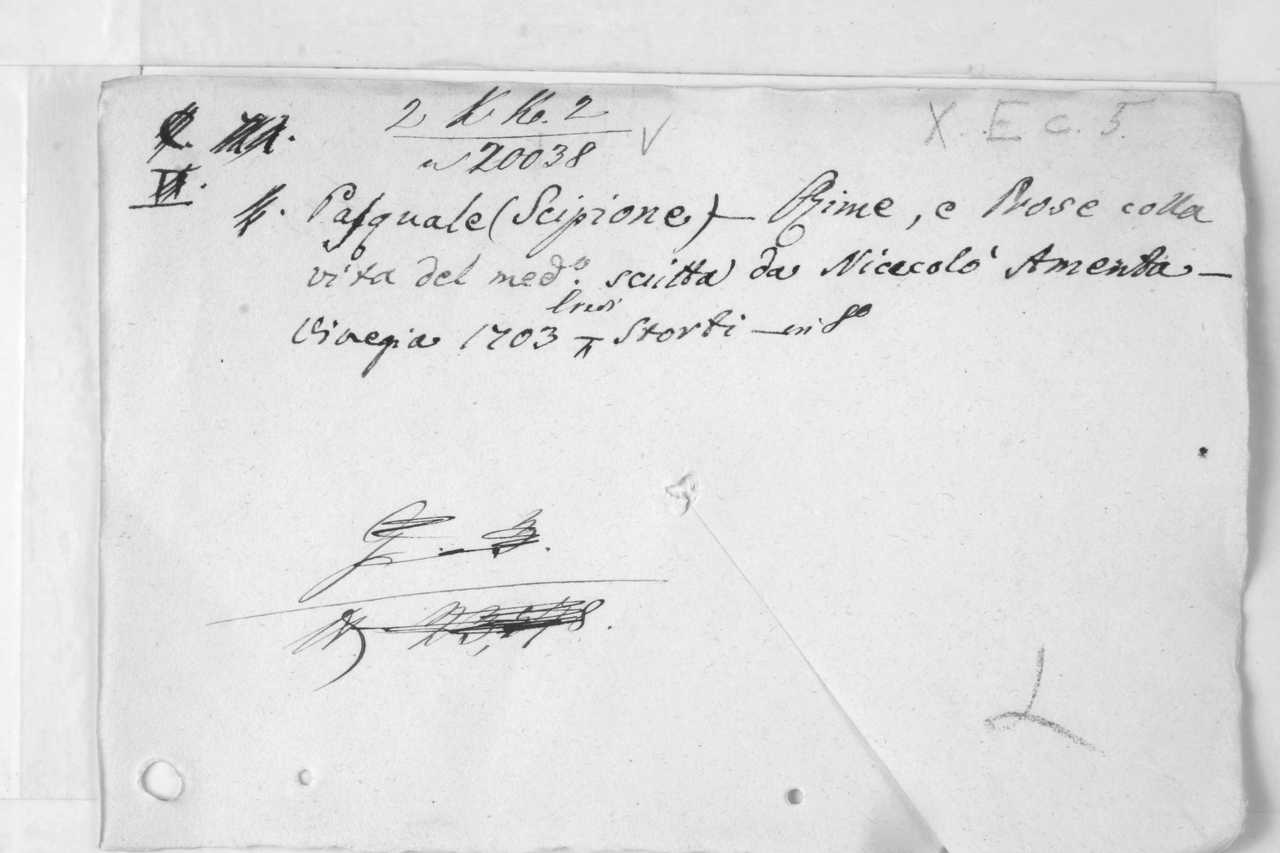 2 K K. 2
20038
X. E c. 5.
Pasquale (Scipione) — Rime, e Prose colla
vita del med.º scritta da Niccolò Amenta —
Vinegia 1703 Storti — in 8º
L